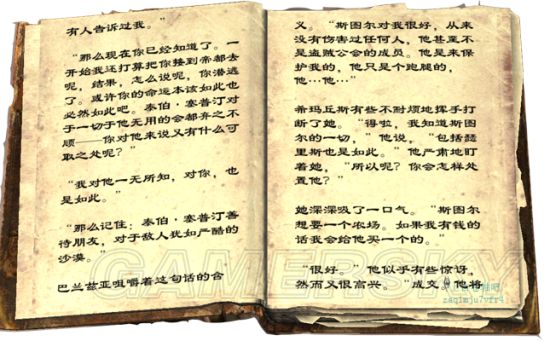 有人告诉过我。”
“那么现在你已经知道了。一
开始我还打算把你接到帝都去
呢，结果，怎么说呢，你潜逃
了。或许你的命运本该如此也
必然如此吧。泰伯·塞普汀对
于一切于他无用的会都弃之不
顾——你对他来说又有什么可
取之处呢？”
“我对他一无所知，对你，也
是如此。”
“那么记住：泰伯·塞普汀善
待朋友，对于敌人犹如严酷的
沙漠。”
巴兰兹亚咀嚼着这句话的含
义。“斯图尔对我很好，从来
没有伤害过任何人，他甚至不
是盗贼公会的成员。他是来保
护我的，他只是个跑腿的，
他…他…”
希玛丘斯有些不耐烦地挥手打
断了她。“得啦，我知道斯图
尔的一切，”他说，“包括瑟
里斯也是如此。”他严肃地盯
着她，“所以呢？你会怎样处
置他？”
她深深吸了一口气。“斯图尔
想要一个农场。如果我有钱的
话我会给他买一个的。”
“很好。”他似乎有些惊讶，
然而又很高兴。“成交。他将
GAMERSKY
zaqimju7vfr4